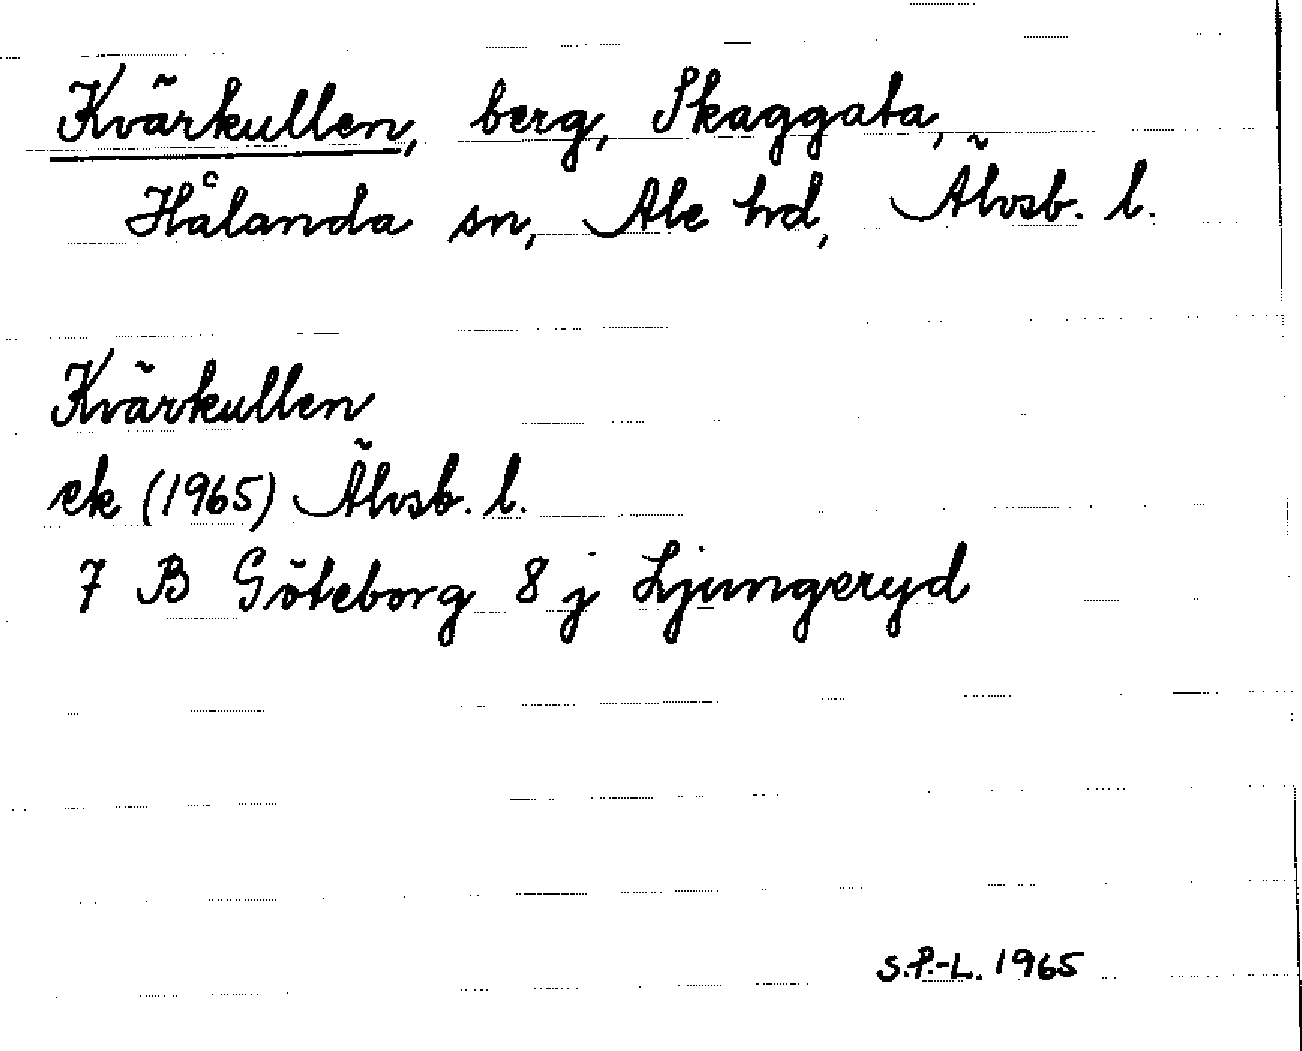 Kvärkullen, berg, Skaggata,
Hålanda sn, Ale hd, Älvsb. l.
Kvärkullen
ek (1965) Älvsb. l.
7 B Göteborg 8 j Ljungeryd
S.P.-L. 1965